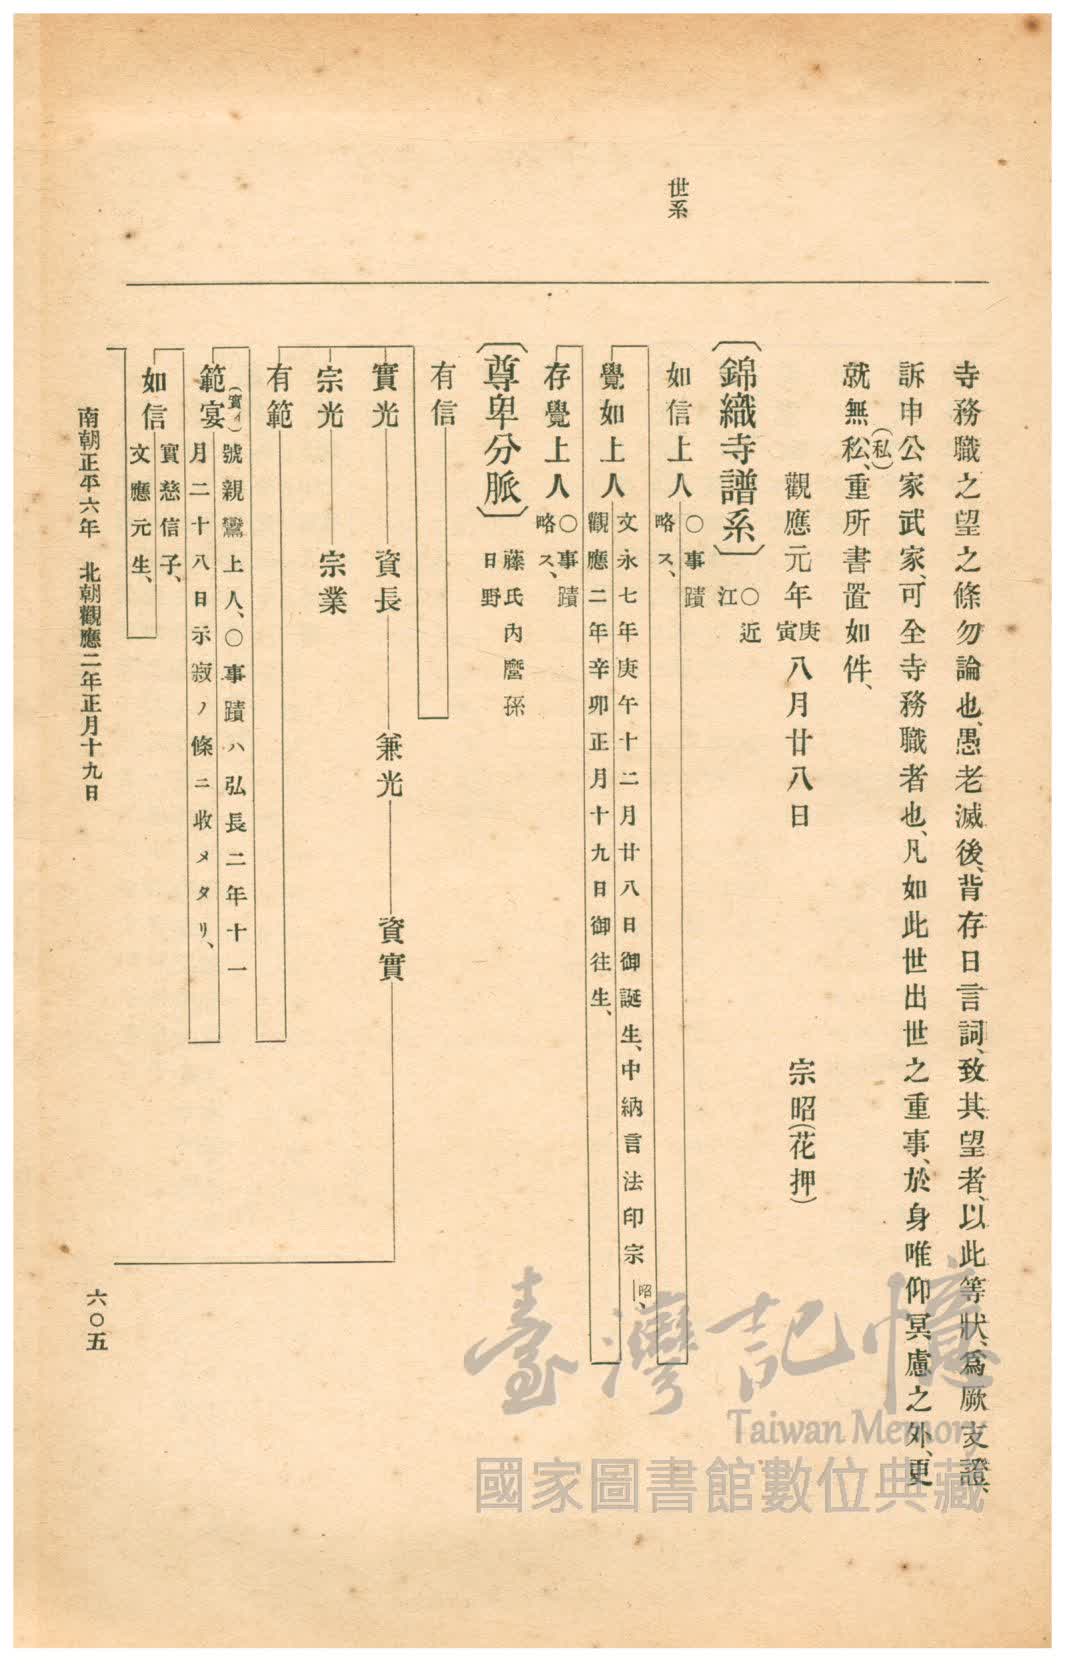 世系
寺務職之望之條勿論也、愚老滅後、背存日言詞、致其望者、以此等狀、爲厥支證、
訴申公家武家、可全寺務職者也、凡如此世出世之重事、於身唯仰冥慮之外、更
就無私(私)、重所書置如件、
觀應元年庚寅八月廿八日 宗昭(花押)
〔錦織寺譜系〕○近江
如信上人 ○事蹟略ス、
覺如上人 文永七年庚午十二月廿八日御誕生、中納言法印宗昭、
觀應二年辛卯正月十九日御往生、
存覺上人 ○事蹟略ス、
〔尊卑分脈〕藤氏內麿孫
日野
有信
實光 資長 兼光 資實
宗光 宗業
有範
範宴(實イ) 號親鸞上人、○事蹟ハ弘長二年十一
月二十八日示寂ノ條ニ收メタリ、
如信 實慈信子、
文應元生、
南朝正平六年 北朝觀應二年正月十九日
六〇五
臺灣記憶
Taiwan Memory
國家圖書館數位典藏